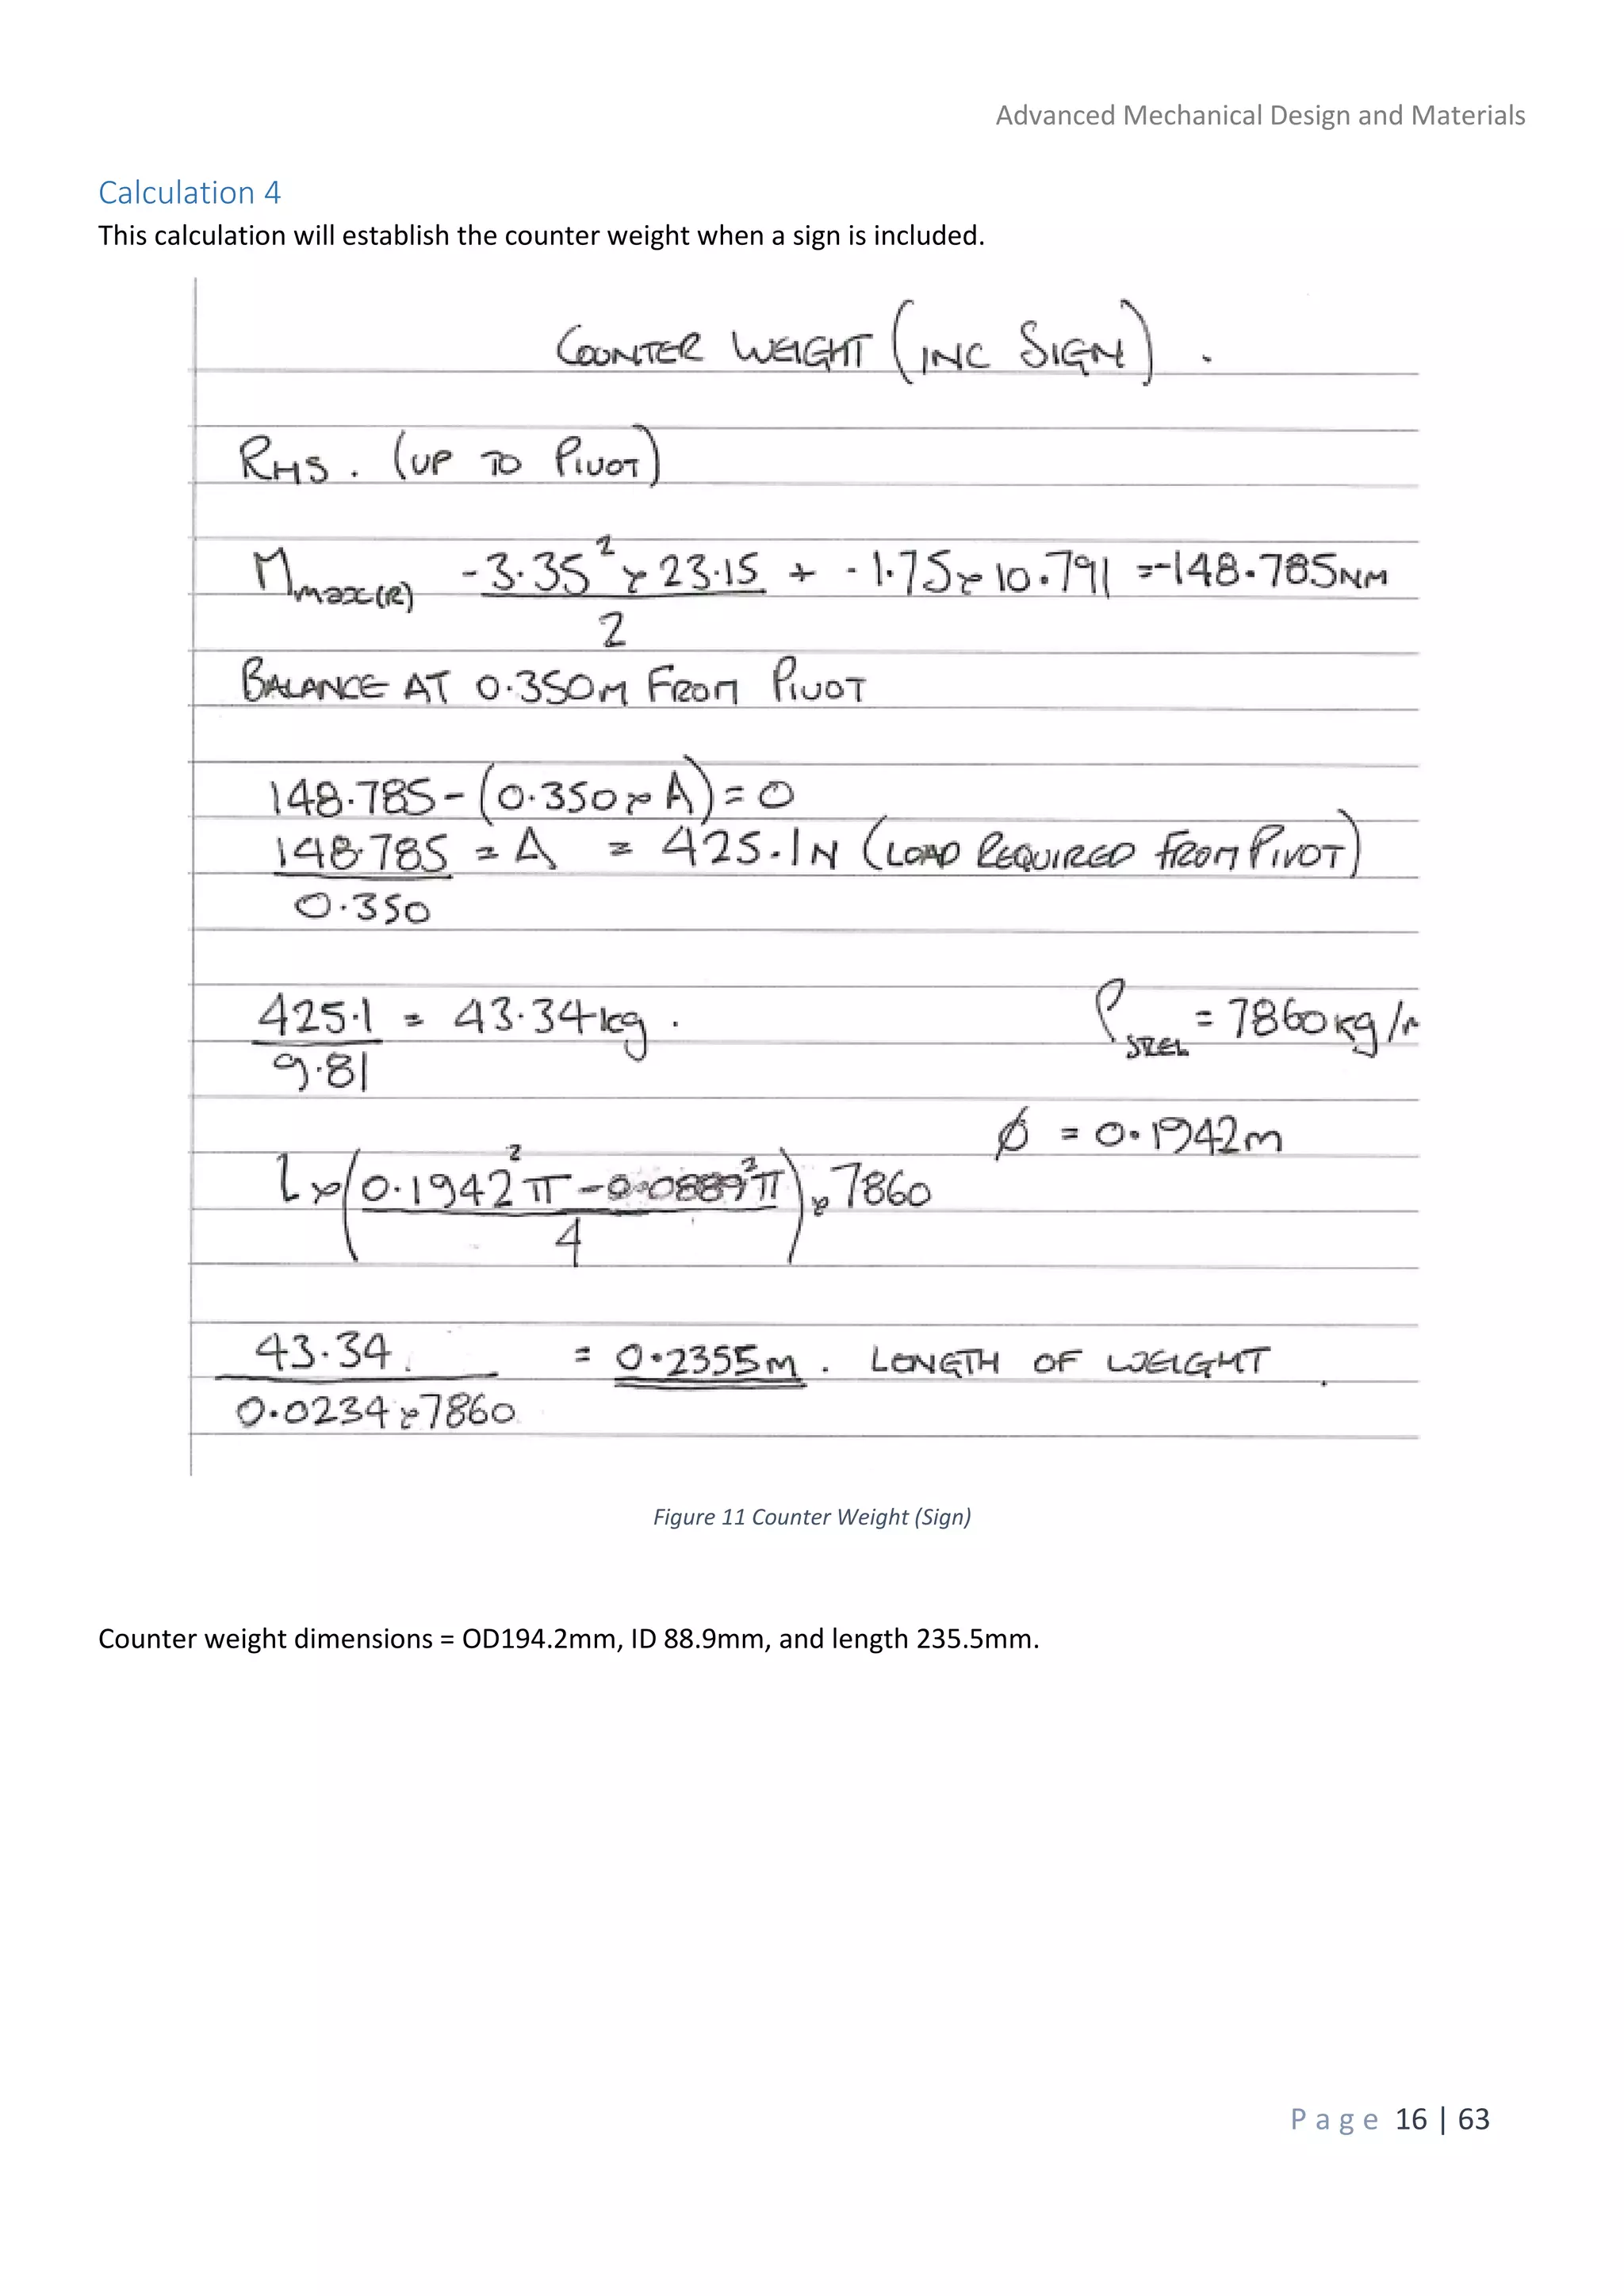 Advanced Mechanical Design and Materials
Calculation 4
This calculation will establish the counter weight when a sign is included.
COUNTER WEIGHT (INC SIGN).
RHS. (UP TO PIVOT)
Mmax(R) -3.35² × 23.15 + -1.75 × 10.791 = -148.785NM
2
BALANCE AT 0.350M FROM PIVOT
148.785 - (0.350 × A) = 0
148.785 = A = 425.1N (LOAD REQUIRED FROM PIVOT)
0.350
425.1 = 43.34kg.
9.81
ρSTEEL = 7860kg/
φ = 0.1942m
L × (0.1942²π - 0.0889²π) × 7860
4
43.34 = 0.2355m. LENGTH OF WEIGHT.
0.0234 × 7860
Figure 11 Counter Weight (Sign)
Counter weight dimensions = OD194.2mm, ID 88.9mm, and length 235.5mm.
Page 16 | 63